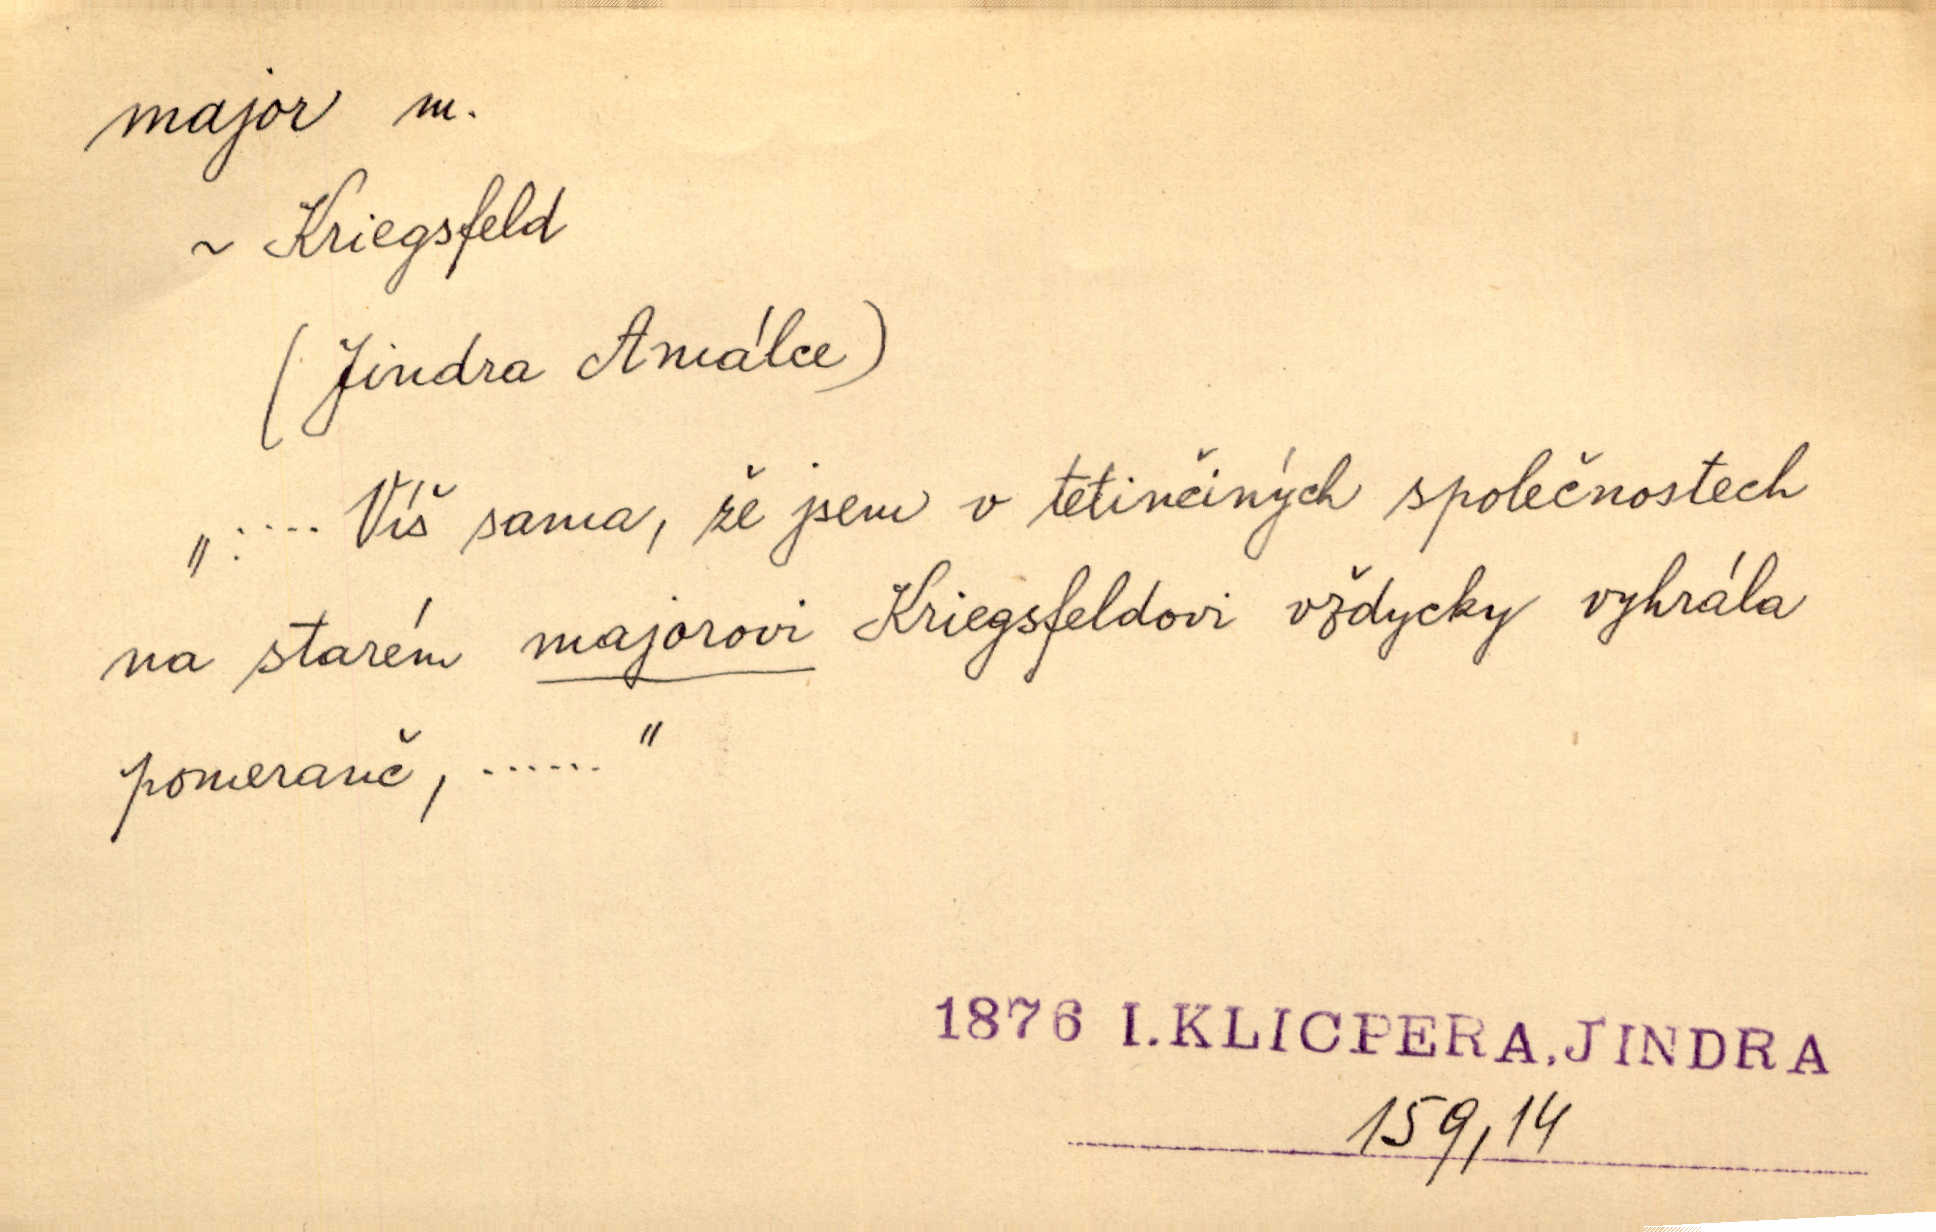 major m.
~ Kriegsfeld
(Jindra Amálce)
„:.... Víš sama, že jsem v tetinčiných společnostech
na starém majorovi Kriegsfeldovi vždycky vyhrála
pomeranč, ......"
1876 I.KLICPERA,JINDRA
159,14